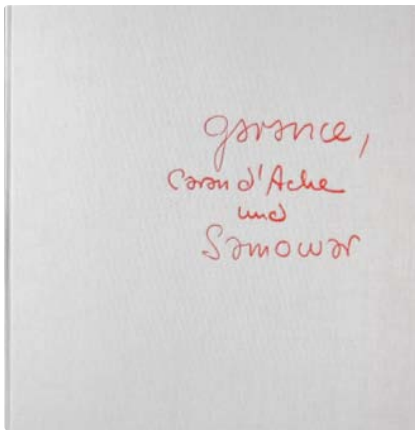 garance,
Caran d'Ache
und
Samowar